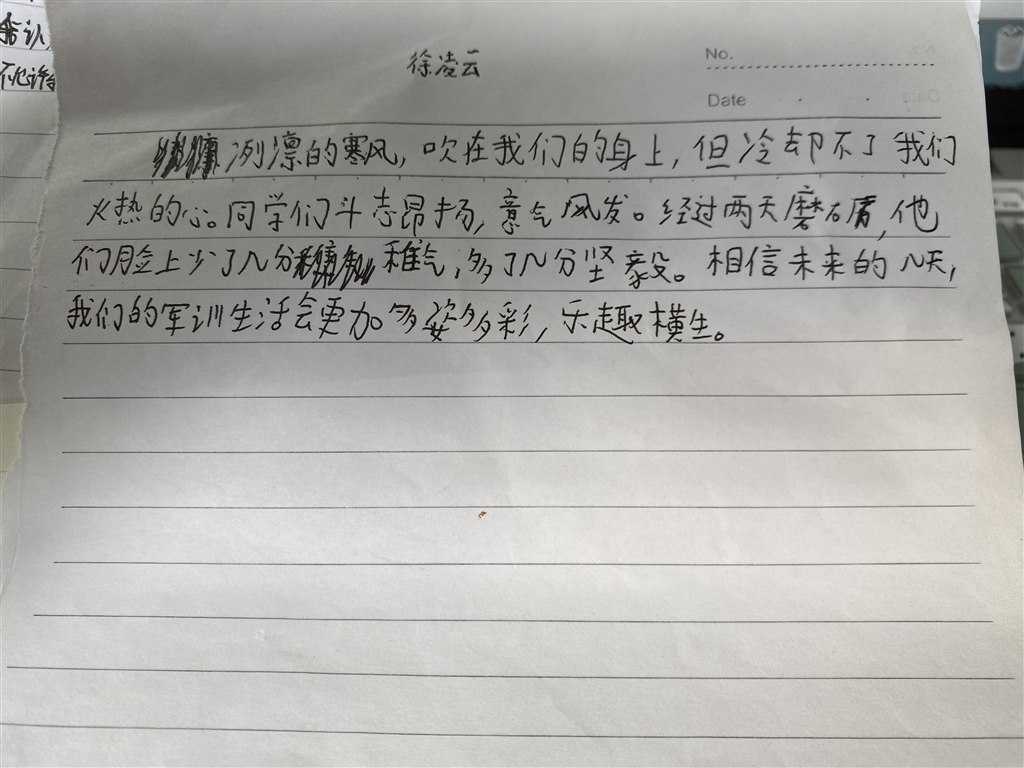 徐凌云
No.
Date
冽凛的寒风，吹在我们的身上，但冷却不了我们
火热的心。同学们斗志昂扬，意气风发。经过两天磨砺，他
们脸上少了几分稚气，多了几分坚毅。相信未来的几天，
我们的军训生活会更加多姿多彩，乐趣横生。